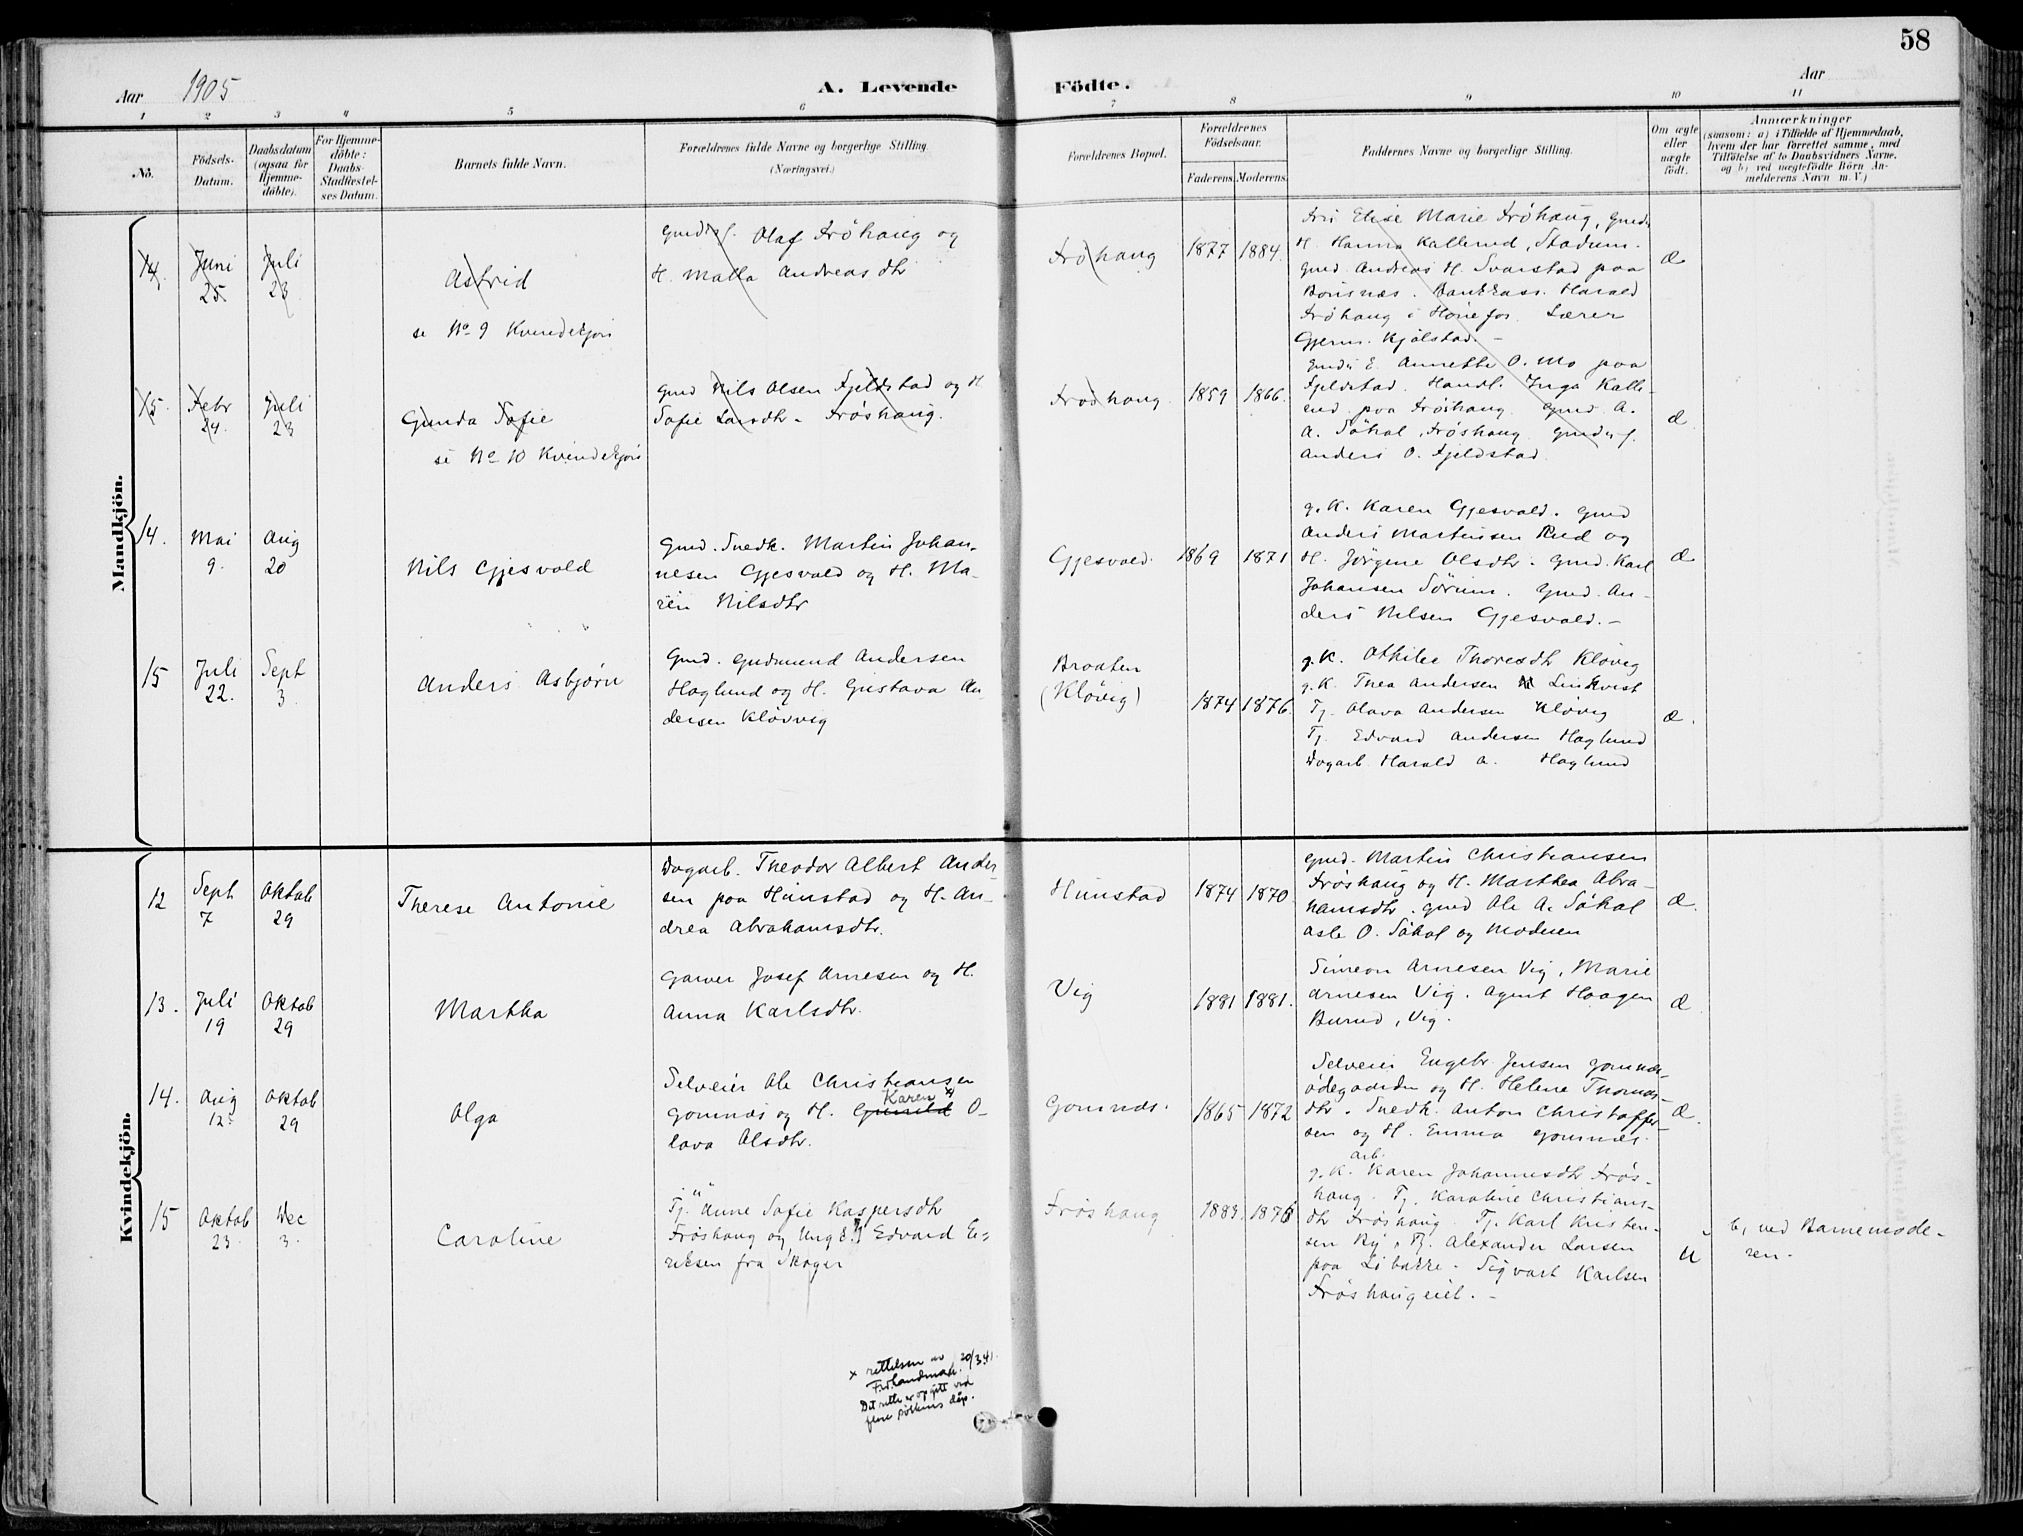 58
Aar 1905
A. Levende Födte.
Aar
1 2 3 4 5 6 7 8 9 10 11
No.
Födsels-Datum.
Daabsdatum (ogsaa for Hjemme-döbte).
For Hjemme-döbte: Daabs-Stadfæstel-ses Datum.
Barnets fulde Navn.
Forældrenes fulde Navne og borgerlige Stilling.
(Næringsvei.)
Forældrenes Bopæl.
Forældrenes Födselsaar.
Faderens. Moderens.
Faddernes Navne og borgerlige Stilling.
Om ægte eller uægte födt.
Anmærkninger
(saasom: a) i Tilfælde af Hjemmedaab,
hvem der har forrettet samme, med
Tilföielse af to Daabsvidners Navne,
og b) ved uægtefödte Börn An-
melderens Navn m. V.)
Mandkjön.
14. Juni 25 Juli 23
Astrid
se No 9 Kvindekjön
Gmd. Olaf Fröhaug og
H. Matla Andreasdtr
Fröhaug 1877 1884
Elise Marie Fröhaug,
H. Hanna Kallerud, Stadum.
Gmd. Andreas H. Svarstad paa
Bönsnæs. Bankkass. Harald
Fröhaug i Hönefos. Lærer
Gjerm. Kjölstad. -
æ
15. Febr 24. Juli 23
Gunda Sofie
se No 10 Kvindekjön
Gmd Nils Olsen Fjeldstad og H
Sofie Larsdtr - Fröshaug.
Fröshaug. 1859 1866.
E. Annette O. Mo paa
Fjeldstad. Handl. Inga Kalle-
rud paa Fröshaug. Gmd A.
A. Såhol, Fröshaug.
Anders O. Fjeldstad.
æ
14. Mai 9. Aug 20
Nils Gjesvold
Gmd. Snedk. Martin Johan-
nesen Gjesvold og H. Ma-
ren Nilsdtr
Gjesvold. 1869 1871
g. K. Karen Gjesvold. Gmd
Anders Martinsen Rud og
H. Jörgine Olsdtr. Gmd. Karl
Johansen Sörum. Gmd. An-
ders Nilsen Gjesvold. -
æ
15 Juli 22. Sept 3.
Anders Asbjörn
Gmd. Gudmund Andersen
Haglund og H. Gustava An-
dersen Klövvig
Braaten
(Klövig)
1874 1876.
g. K. Othilie Thoresdtr Klövig
g. K. Thea Andersen Linkvist
Tj. Olava Andersen Klövig
Tj. Edvard Andersen Haglund
Dagarb. Harald A. Haglund
æ.
Kvindekjön.
12 Sept 7 Oktob 29
Therese Antonie
Dagarb. Theodor Albert Ander
sen paa Hunstad og H. An-
drea Abrahamsdtr.
Hunstad 1874 1870
Gmd. Martin Christiansen
Fröshaug og H. Marthea Abra-
hamsdtr. Gmd Ole A. Såhol
Asle O. Såhol og Moderen
æ.
13. Juli 19 Oktob 29
Martha
Garver Josef Arnesen og H.
Anna Karlsdtr.
Vig 1881 1881.
Simeon Arnesen Vig, Marie
Arnesen Vig. Agent Haagen
Burud, Vig.
æ
14. Aug 12. Oktob 29
Olga
Selveier Ole Christiansen
Karen x
Gomnæs og H. Gunild O-
lava Olsdtr.
Gomnæs. 1865 1872
Selveier Engebr. Jensen Gomnæs-
ödegaarden og H. Helene Thomas-
dtr. Snedk. Anton Christoffer-
sen og H. Emma Gomnæs.
æ.
15 Oktob 23. Dec 3.
Caroline
Tj. Anne Sofie Kaspersdtr
Fröshaug og Ungk. Edvard E-
riksen fra Skoger
Fröshaug 1883. 1876
arb.
g. K. Karen Johannesdtr Frös-
haug. Tj. Karoline Christians-
dtr Fröshaug. Tj. Karl Kristen-
sen By, Tj. Alexander Larsen
paa Libakke. Sigvart Karlsen
Fröshaugeiet. -
u
b, ved Barnemode-
ren.
x rettelsen av 20/3 41.
Det rette er opgitt ved
flere söskens dåp.